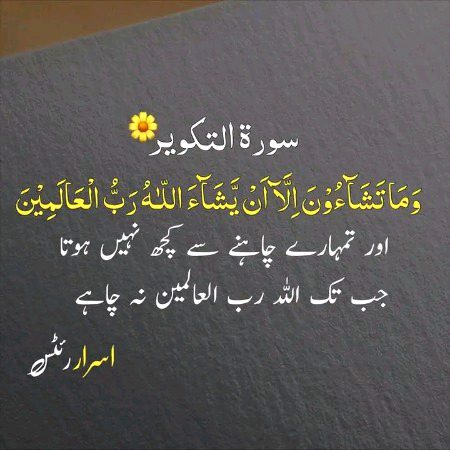 سورة التکویر
وَمَا تَشَآءُوْنَ اِلَّاۤ اَنْ يَّشَآءَ اللّٰهُ رَبُّ الْعَالَمِيْنَ
اور تمہارے چاہنے سے کچھ نہیں ہوتا
جب تک اللہ رب العالمین نہ چاہے
اسرار رئٹس